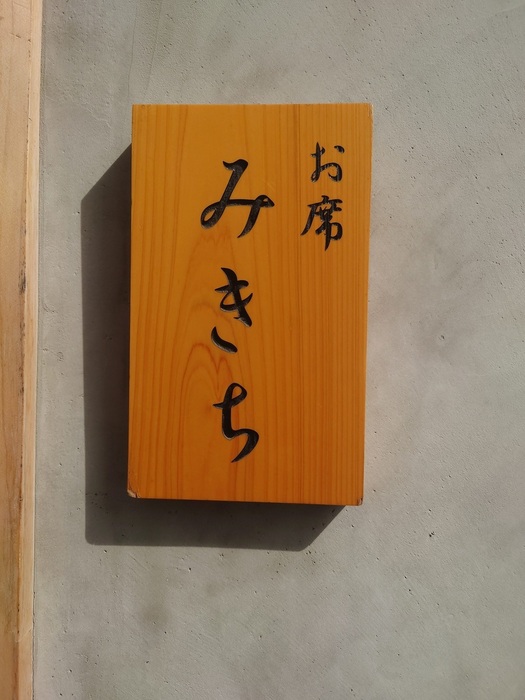 お席
みきち